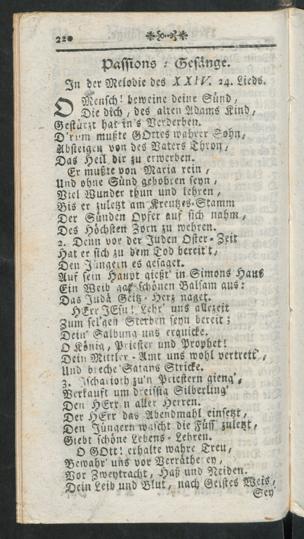 220
Passions-Gesänge.
In der Melodie des XXIV. 24. Lieds.
O Mensch! beweine deine Sünd,
Die dich, des alten Adams Kind,
Gestürzt hat in's Verderben.
D'rum mußte GOttes wahrer Sohn,
Absteigen von des Vaters Thron,
Das Heil dir zu erwerben.
Er mußte von Maria rein,
Und ohne Sünd gebohren seyn,
Viel Wunder thun und lehren,
Bis er zuletzt am Kreutzes-Stamm
Der Sünden Opfer auf sich nahm,
Des Höchsten Zorn zu wehren.
2. Denn vor der Juden Oster-Zeit
Hat er sich zu dem Tod bereit't,
Den Jüngern es gesaget.
Auf sein Haupt gießt in Simons Haus
Ein Weib gar schönen Balsam aus:
Das Judä Geitz-Herz naget.
HErr JEsu! Lehr' uns allezeit
Zum sel'gen Sterben seyn bereit;
Dein' Salbung uns erquicke.
O König, Priester und Prophet!
Dein Mittler-Amt uns wohl vertrett',
Und breche Satans Stricke.
3. Ischarioth zu'n Priestern gieng',
Verkauft um dreissig Silberling'
Den HErrn aller Herren.
Der HErr das Abendmahl einsetzt,
Den Jüngern wäscht die Füss' zuletzt,
Giebt schöne Lebens-Lehren.
O GOtt! erhalte wahre Treu,
Bewahr' uns vor Verrätherey,
Vor Zweytracht, Haß und Neiden.
Dein Leib und Blut, nach Geistes Weis,
Sey